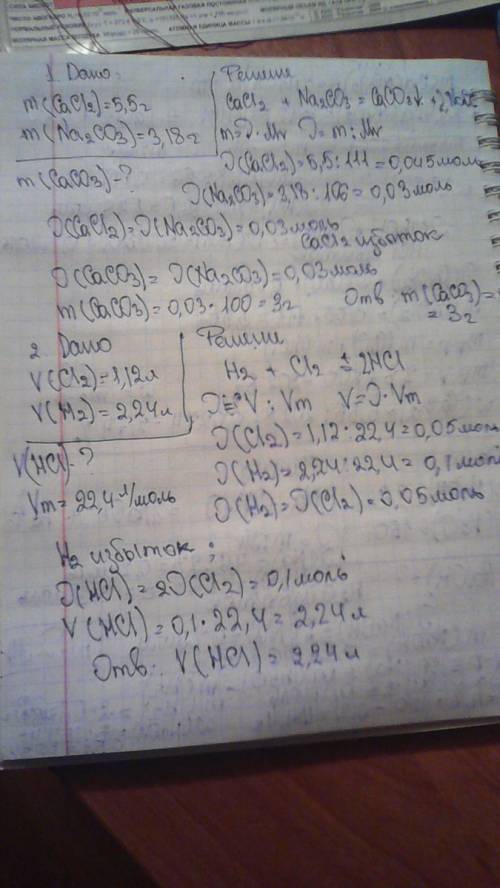 1. Дано:
m(CaCl2)=5,5г
m(Na2CO3)=3,18г
m(CaCO3)-?
Решение
CaCl2 + Na2CO3 = CaCO3↓ +
m=ϑ·Mr ϑ=m:Mr
ϑ(CaCl2)=5,5:111=0,045моль
ϑ(Na2CO3)=3,18:106=0,03моль
ϑ(CaCl2)=ϑ(Na2CO3)=0,03моль
CaCl2 избыток
ϑ(CaCO3)=ϑ(Na2CO3)=0,03моль
m(CaCO3)=0,03·100=3г
Отв: m(CaCO3)=
=3г
2 Дано
V(Cl2)=1,12л
V(H2)=2,24л
V(HCl)-?
Vm=22,4 л/моль
Решение
H2 + Cl2 = 2HCl
ϑ=V:Vm V=ϑ·Vm
ϑ(Cl2)=1,12:22,4=0,05моль
ϑ(H2)=2,24:22,4=0,1моль
ϑ(H2)=ϑ(Cl2)=0,05моль
H2 избыток;
ϑ(HCl)=2ϑ(Cl2)=0,1моль
V(HCl)=0,1·22,4=2,24л
Отв: V(HCl)=2,24л